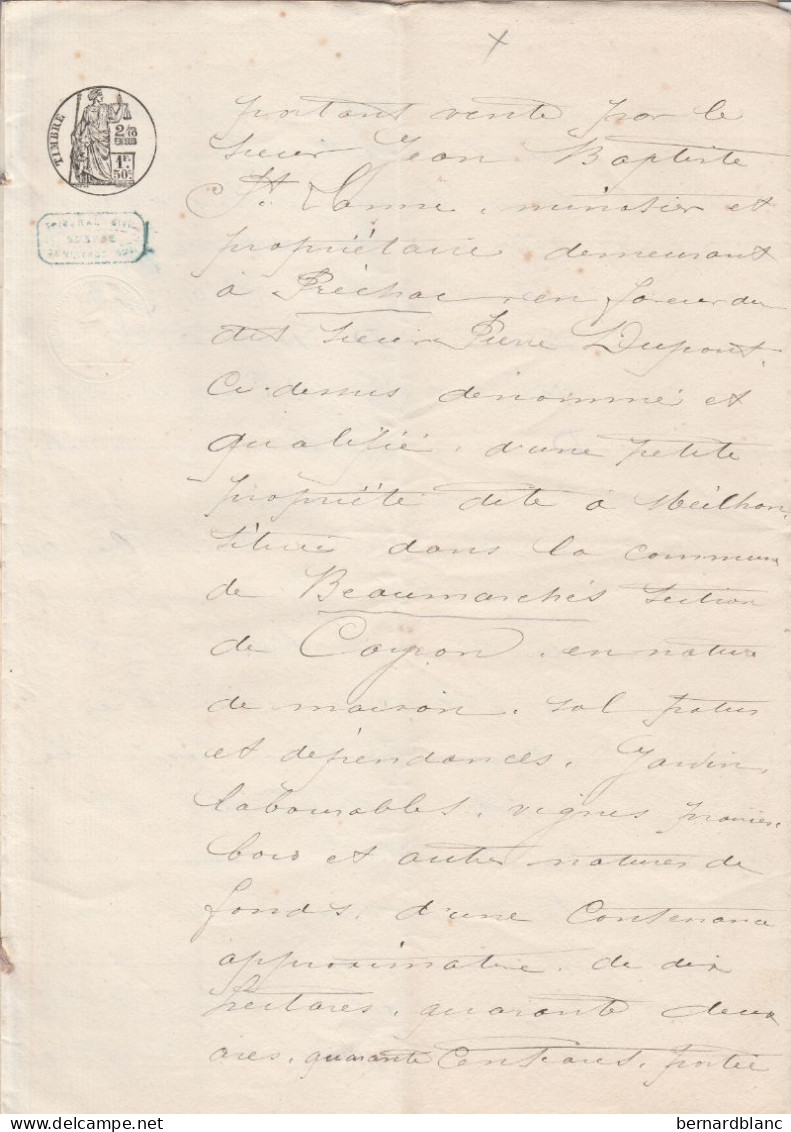 TIMBRE
2/10
EN SUS
1F.
50c.
portant vente par le
Sieur Jean Baptiste
St. Lanne, minotier et
propriétaire demeurant
à Préchac, en faveur du
dit sieur Pierre Dupont,
ci-dessus dénommé et
qualifié, d'une petite
propriété dite à Meilhan,
située dans la commune
de Beaumarchés section
de Cayron, en nature
de maison, sol patus
et dépendances, Jardin,
labourables, vignes, prairies,
bois et autres natures de
fonds, d'une Contenance
approximative de dix
hectares, quarante deux
ares, quarante Centiares, portée
bernardblanc